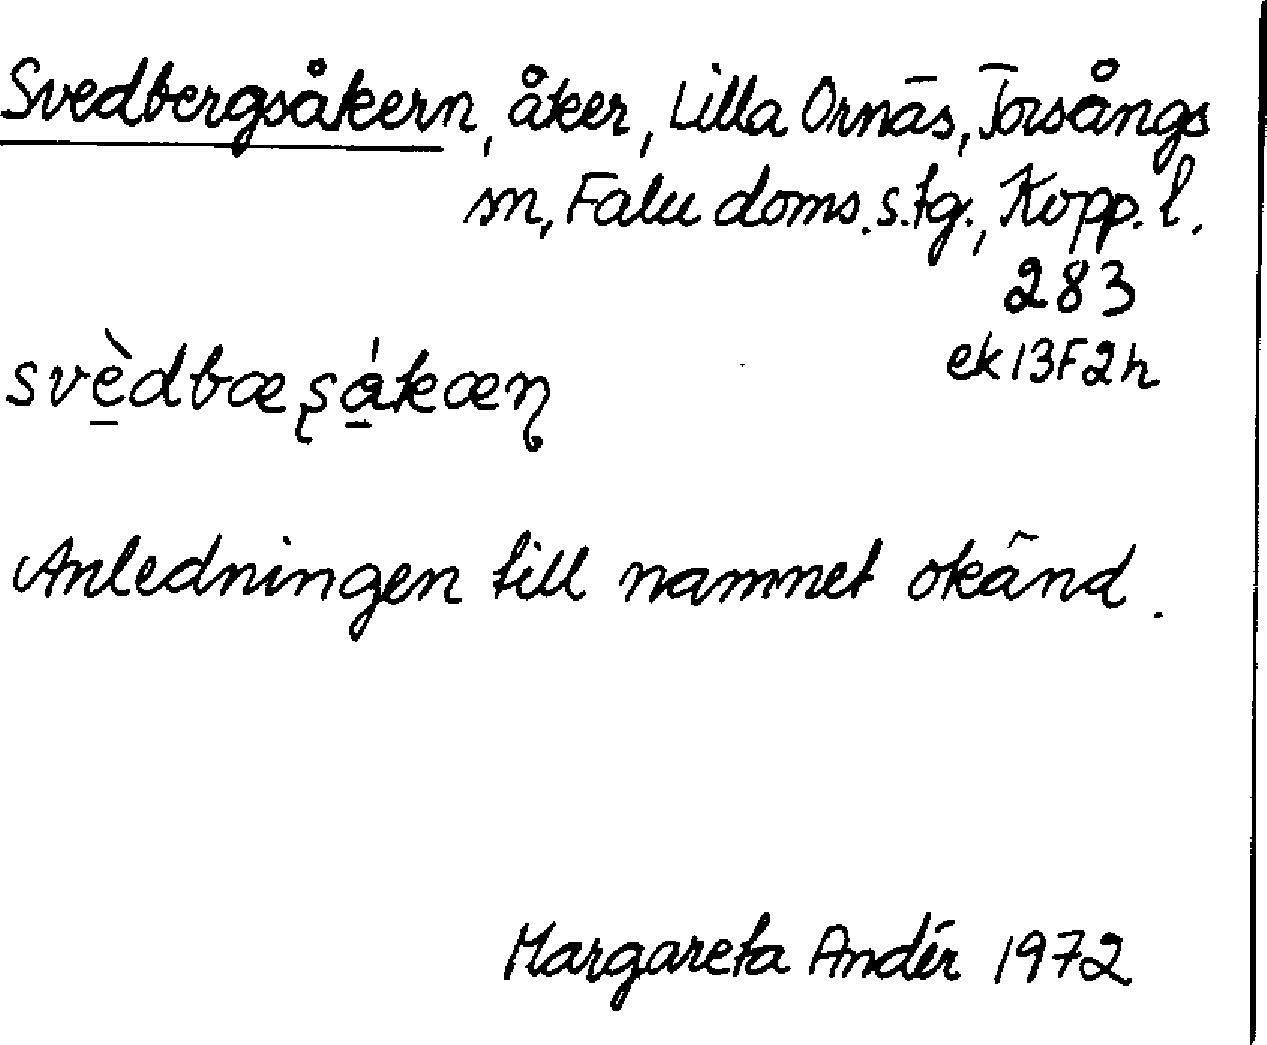 Svedbergsåkern, åker, Lilla Ornäs, Torsångs
sn, Falu doms.s.tg., Kopp. l.
283
ek 13F2h
svèdbæʂákæɳ
Anledningen till namnet okänd.
Margareta Andér 1972